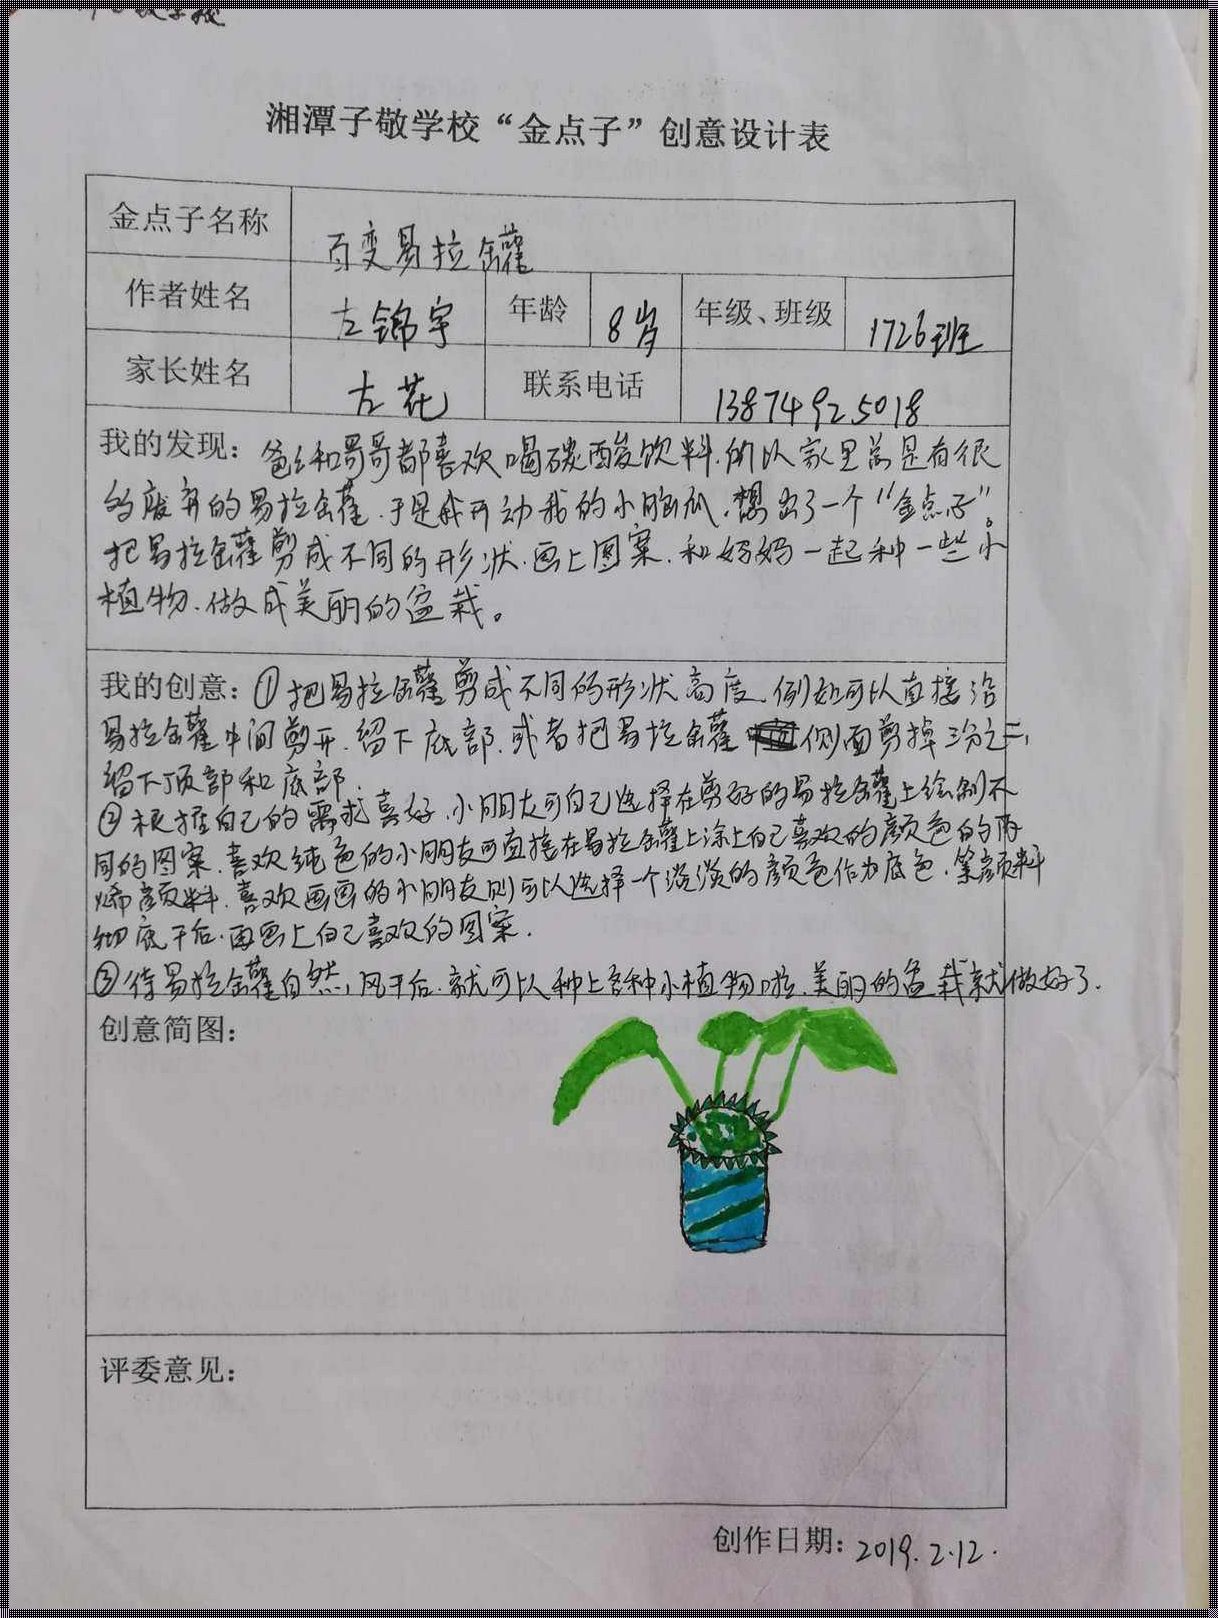 湘潭子敬学校“金点子”创意设计表
金点子名称 百变易拉罐
作者姓名 左锦宇 年龄 8岁 年级、班级 1726班
家长姓名 左花 联系电话 13874925018
我的发现：爸爸和哥哥都喜欢喝碳酸饮料.所以家里总是有很
的废弃的易拉罐.于是我开动我的小脑瓜.想出了一个“金点子”。
把易拉罐剪成不同的形状.画上图案.和妈妈一起种一些小
植物.做成美丽的盆栽。
我的创意：①把易拉罐剪成不同的形状高度.例如可以直接沿
易拉罐中间剪开.留下底部.或者把易拉罐侧面剪掉三分之二,
留下顶部和底部.
②根据自己的需求喜好.小朋友可自己选择在剪好的易拉罐上绘制不
同的图案.喜欢纯色的小朋友可直接在易拉罐上涂上自己喜欢的颜色的丙
烯颜料.喜欢画画的小朋友则可以选择一个淡淡的颜色作为底色.等颜料
彻底干后.再画上自己喜欢的图案.
③待易拉罐自然风干后.就可以种上各种小植物啦.美丽的盆栽就做好了.
创意简图：
评委意见：
创作日期：2019.2.12.